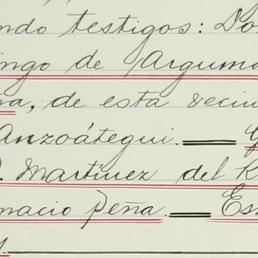 ndo testigos: Do
ngo de Argumo
a, de esta vecin
Anzoátegui.
Martinez del R
nacio Peña. Es